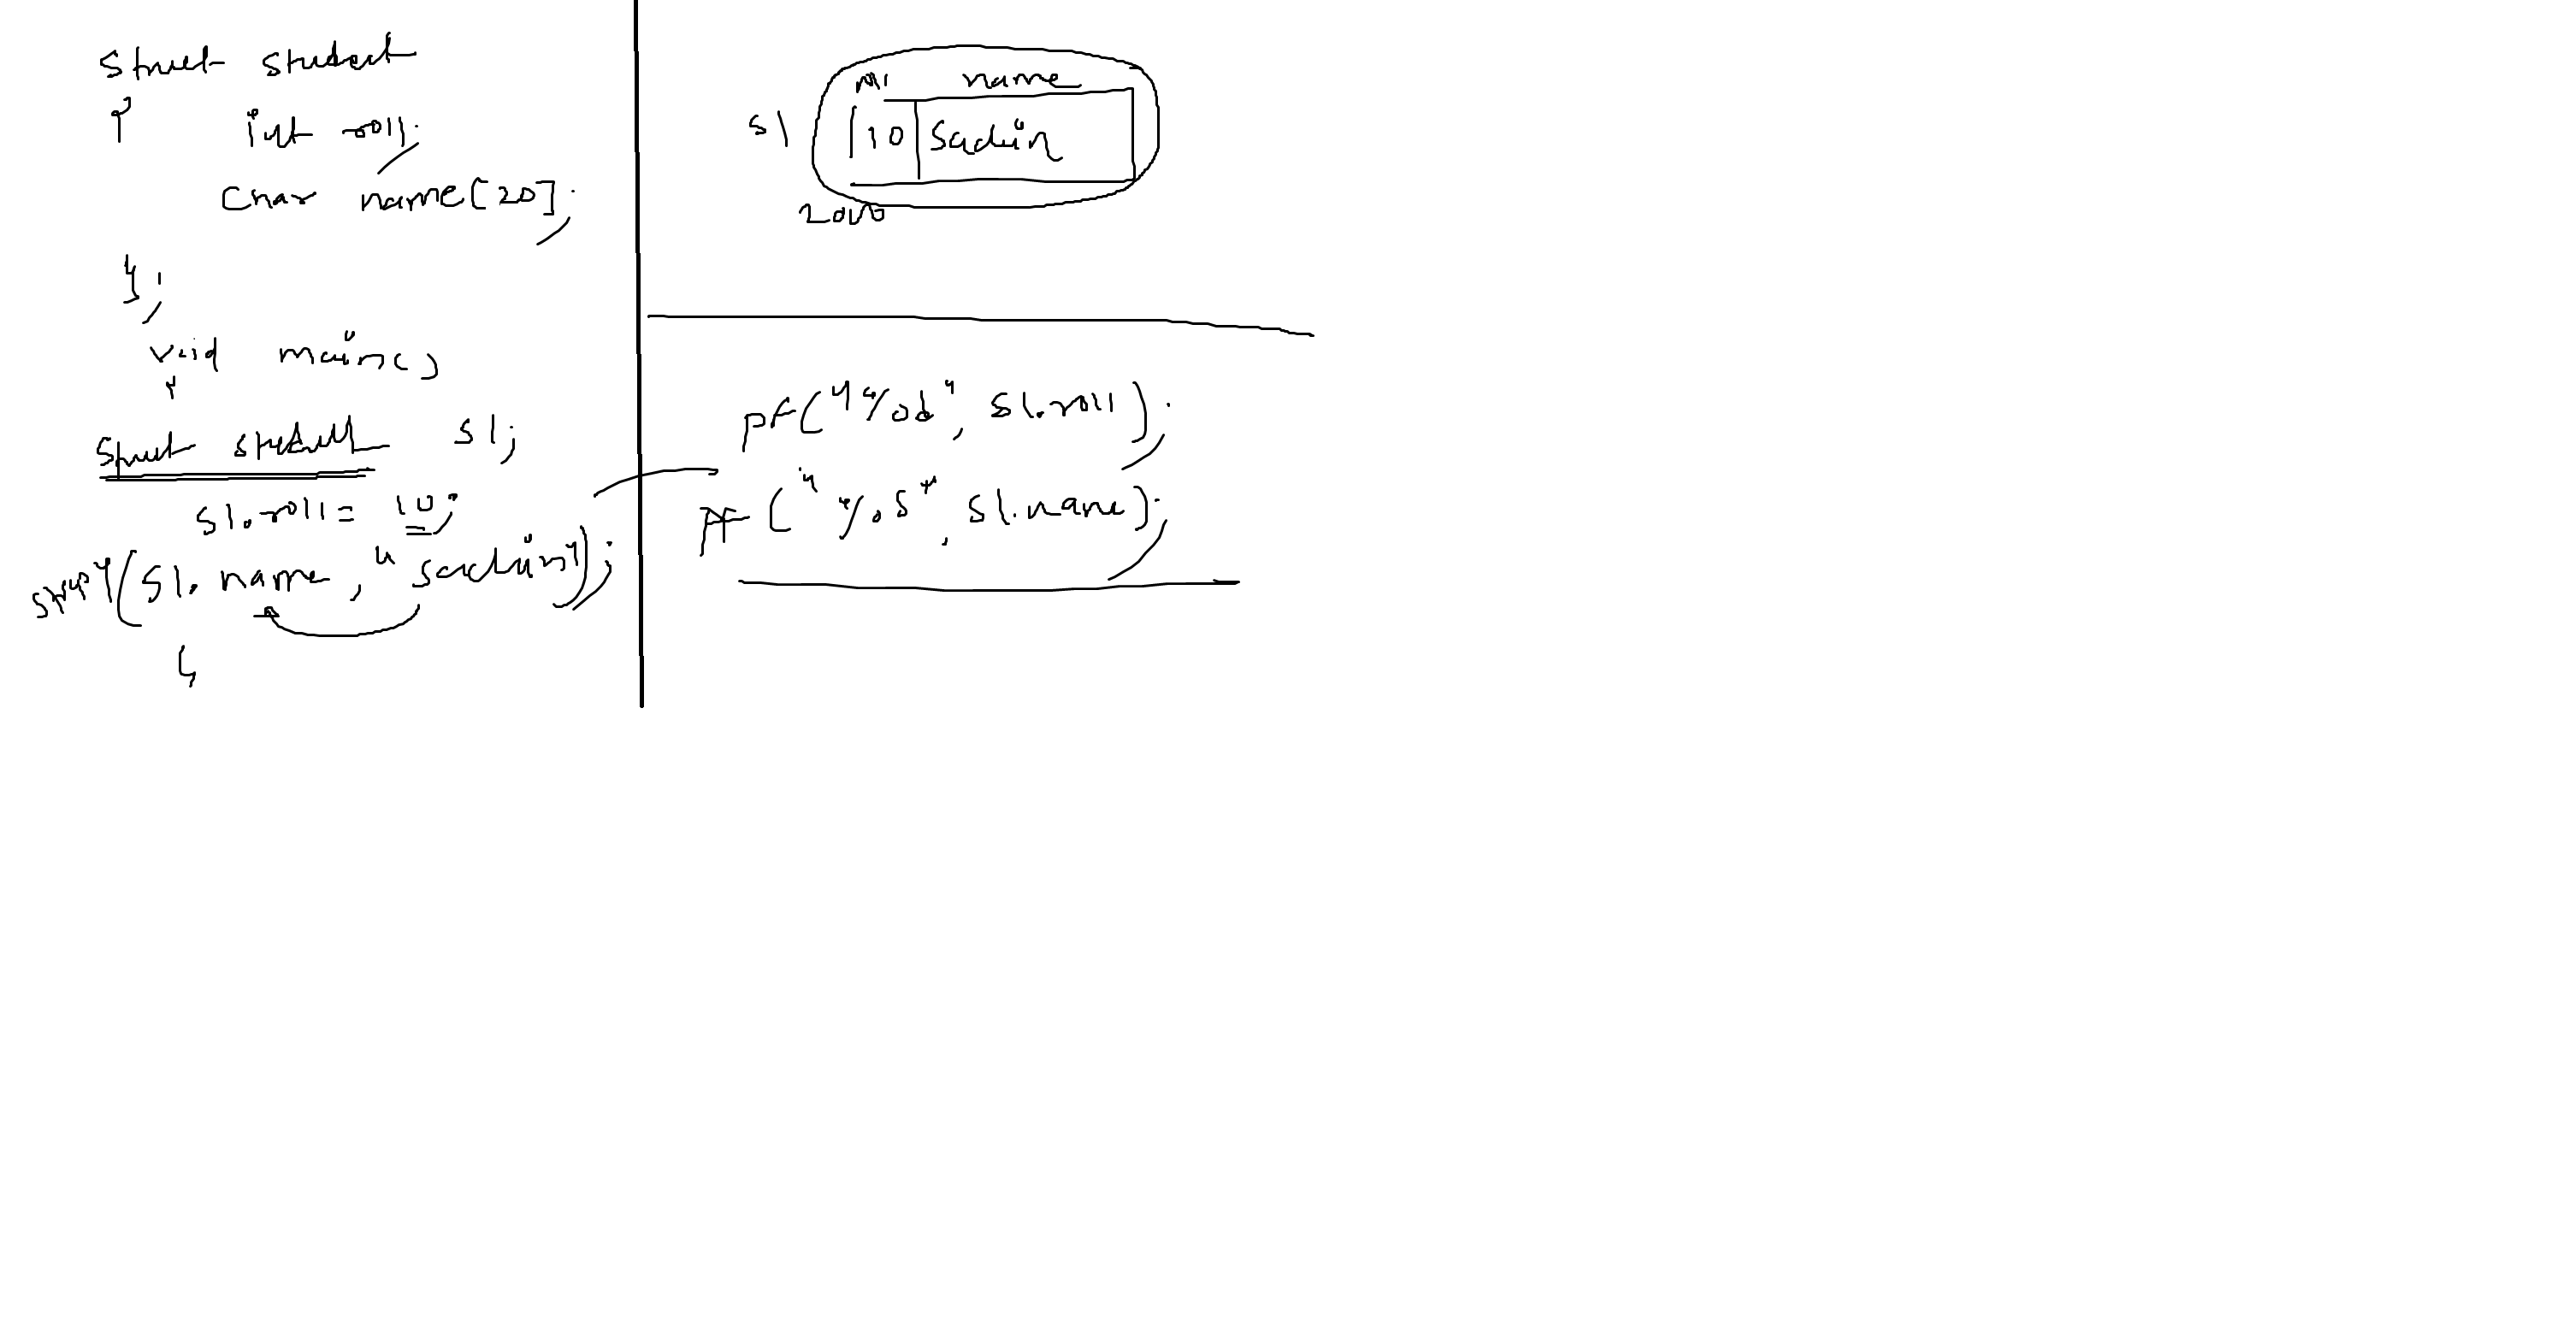 struct student
{
int roll;
char name[20];
};
void main()
{
struct student s1;
s1.roll = 10;
strcpy(s1.name, "sachin");
}
name
s1 10 Sachin
2000
pf("%d", s1.roll);
pf("%s", s1.name);